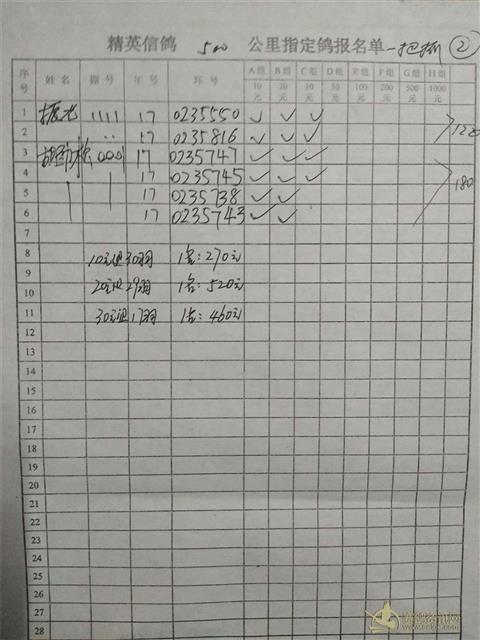 精英信鸽 500 公里指定鸽报名单 一把抓 ②
序号 姓名 棚号 年号 环号 A组 B组 C组 D组 E组 F组 G组 H组
10元 20元 30元 50元 100元 200元 500元 1000元
1 1111 17 0235550 ✓ ✓ ✓
2 17 0235816 ✓ ✓ ✓ 120
3 17 0235747 ✓ ✓ ✓
4 17 0235745 ✓ ✓ ✓ 180
5 17 0235738 ✓ ✓
6 17 0235743 ✓ ✓
7
8 10元组30羽 1名:270元
9
10 20元组29羽 1名:520元
11 30元组17羽 1名:460元
12
13
14
15
16
17
18
19
20
21
22
23
24
25
26
27
28